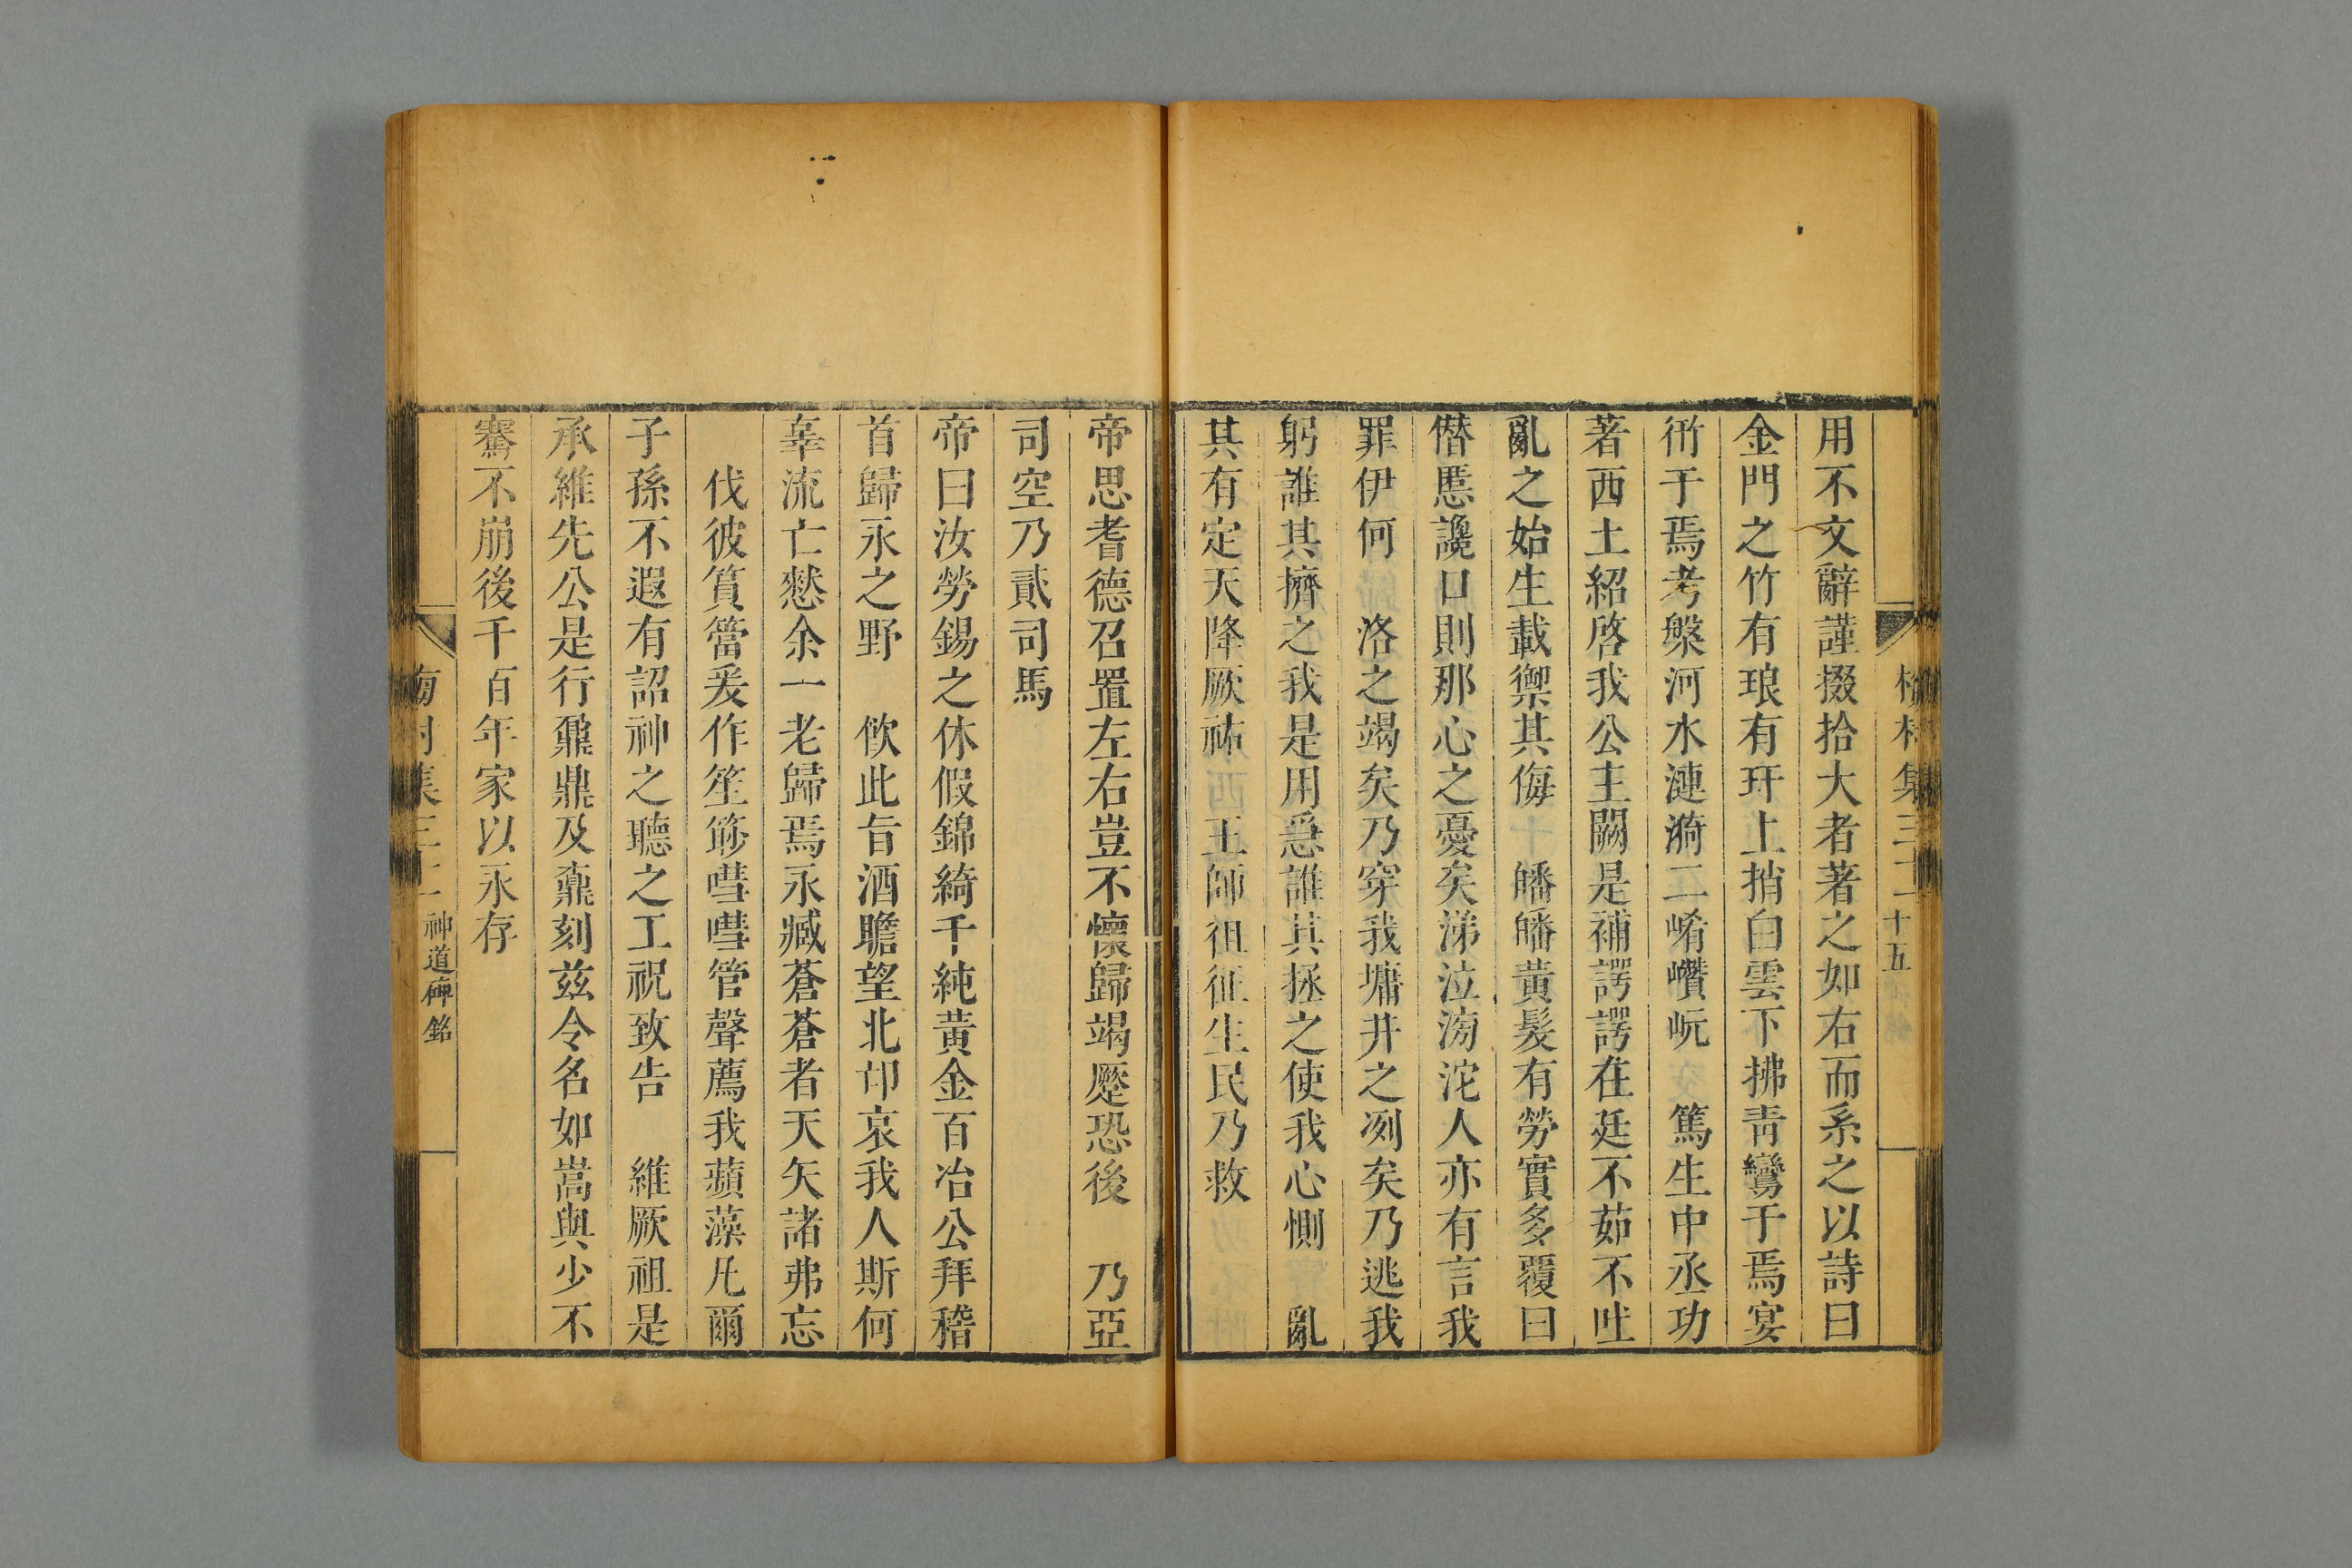 用不文辭謹掇拾大者著之如右而系之以詩曰
金門之竹有琅有玕上捎白雲下拂青鸞于焉宴
衎于焉考槃河水漣漪二崤巑岏 篤生中丞功
著西土紹啓我公主闕是補諤諤在廷不茹不吐
亂之始生載禦其侮 皤皤黄髮有勞實多覆曰
僭慝讒口則那心之憂矣涕泣滂沱人亦有言我
罪伊何 洛之竭矣乃穿我墉井之冽矣乃逃我
躬誰其擠之我是用急誰其拯之使我心惻 亂
其有定天降厥祐 王師徂征生民乃救
帝思耆德召置左右豈不懷歸竭蹷恐後 乃亞
司空乃貳司馬
帝曰汝勞錫之休假錦綺千純黄金百冶公拜稽
首歸永之野 飲此旨酒瞻望北邙哀我人斯何
辜流亡憖余一老歸焉永臧蒼蒼者天矢諸弗忘
伐彼篔簹爰作笙簃嘒嘒管聲薦我蘋藻凡爾
子孫不遐有詔神之聽之工祝致告 維厥祖是
承維先公是行鼐鼎及鼒刻兹令名如嵩與少不
騫不崩後千百年家以永存
梅村集三二 十五
梅村集三二 神道碑銘